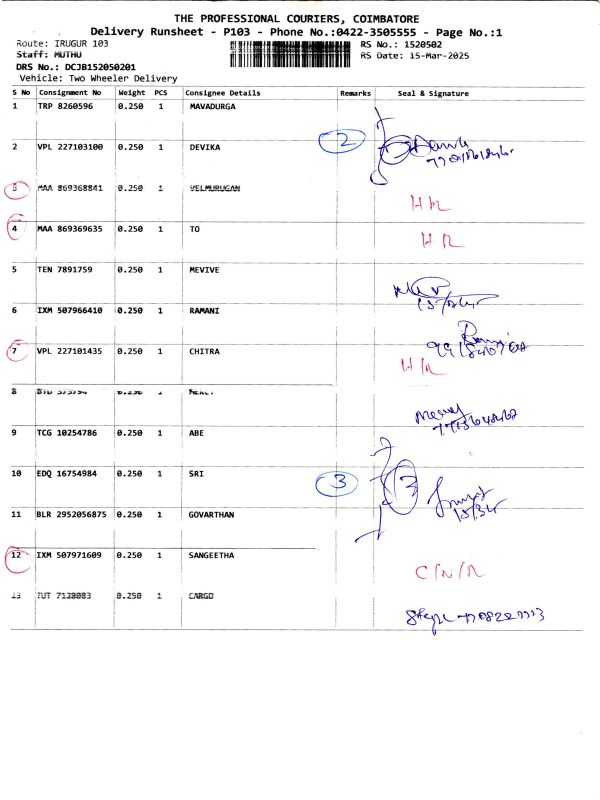 THE PROFESSIONAL COURIERS, COIMBATORE
Delivery Runsheet - P103 - Phone No.:0422-3505555 - Page No.:1
Route: IRUGUR 103 RS No.: 1520502
Staff: MUTHU RS Date: 15-Mar-2025
DRS No.: DCJB152050201
Vehicle: Two Wheeler Delivery
S No Consignment No Weight PCS Consignee Details Remarks Seal & Signature
1 TRP 8260596 0.250 1 MAVADURGA
2 VPL 227103100 0.250 1 DEVIKA 2
3 MAA 869368841 0.250 1 VELMURUGAN H R
4 MAA 869369635 0.250 1 TO H R
5 TEN 7891759 0.250 1 MEVIVE
6 IXM 507966410 0.250 1 RAMANI
7 VPL 227101435 0.250 1 CHITRA H/R
8 0.250 1 MERCY Mercy
9 TCG 10254786 0.250 1 ABE
10 EDQ 16754984 0.250 1 SRI 3 3
11 BLR 2952056875 0.250 1 GOVARTHAN
12 IXM 507971609 0.250 1 SANGEETHA C/N/R
13 TUT 7128083 0.250 1 CARGO